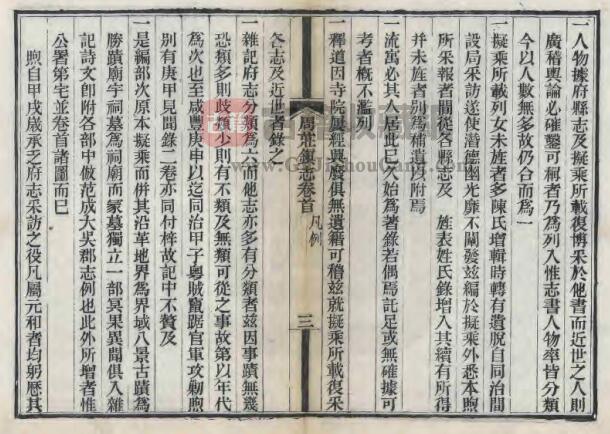 一人物據府縣志及擬乘所載復博采於他書而近世之人則
廣稽輿論必確鑿可稱者乃為列入惟志書人物率皆分類
今以人數無多故仍合而為一
一擬乘所載列女未旌者多陳氏增輯時轉有遺脫自同治間
設局采訪遂使潛德幽光靡不闡發茲編於擬乘外悉本煦
所采報者間從各縣志及 姓表姓氏錄增入其續有所得
并未旌者別為補遺以附焉
一流寓必其人居此已久始為著錄若偶焉託足或無確據可
考者概不濫列
一釋道因寺院厪經興發俱無遺籍可稽茲就擬乘所載復采
周莊鎮志卷首 凡例 三
各志及近世者錄之
一雜記府志分類為六而他志亦多有分類者茲因事蹟無幾
恐類多則歧類少則有不類及無類可從之事故第以年代
為次也至咸豐庚申以迄同治甲子粵賊竄踞官軍攻剿煦
別有庚申見聞錄二卷亦同付梓故記中不贅及
一是編部次原本擬乘而併其沿革地界為界域八景古蹟為
勝蹟廟宇祠墓為祠廟而冢墓獨立一部冥果異聞俱入雜
記詩文卽附各部中倣范成大吳郡志例也此外所增者惟
公署第宅並卷首諸圖而已
煦自甲戌歲承乏府志采訪之役凡屬元和者均躬歷其